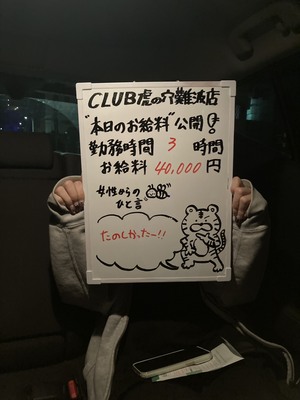 CLUB虎の穴難波店
"本日のお給料"公開!
勤務時間 3 時間
お給料 40,000円
女性からの
ひと言
たのしかったー!!